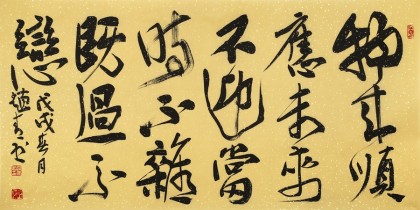 物来順
應未來
不迎當
時不雜
既過不
戀
戊戌春月